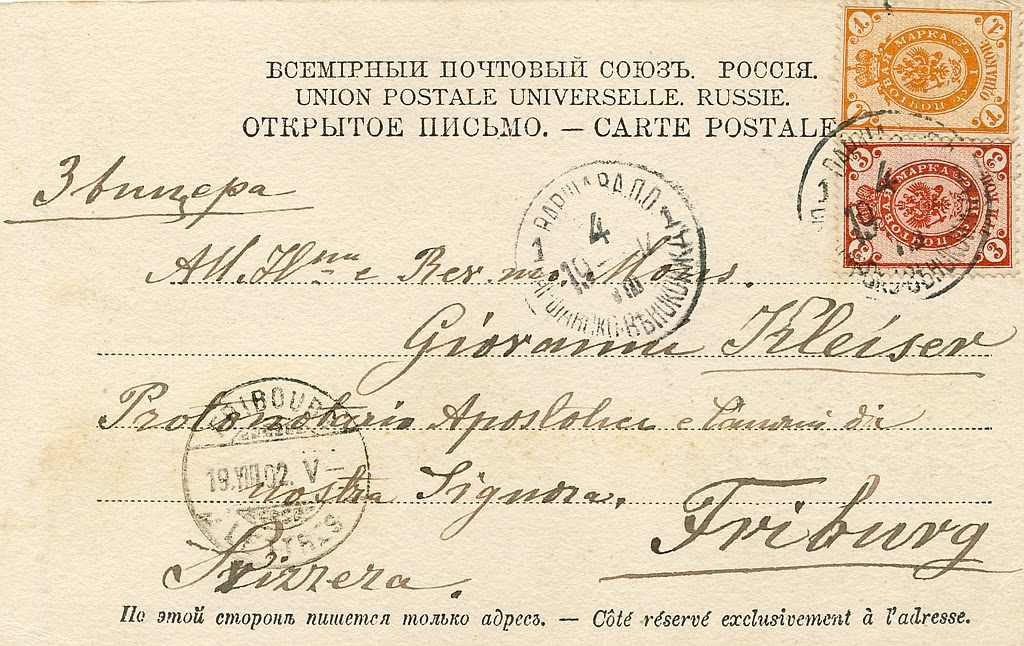 ВСЕМІРНЫЙ ПОЧТОВЫЙ СОЮЗЪ. РОССІЯ.
UNION POSTALE UNIVERSELLE. RUSSIE.
ОТКРЫТОЕ ПИСЬМО. — CARTE POSTALE
1 1
МАРКА
ПОЧТОВАЯ
1
3 3
МАРКА
ПОЧТОВАЯ
3 3
4
19
Звицера
ВАРШАВА П.О.
1 4
19 — V
VIII
All. e Rev. mo Mons.
Giovanni Kleiser
Protonotario Apostolico e
FRIBOURG
19.VIII.02. V—
LETTRES
nostra Signora. Friburg
Svizzera.
По этой сторонѣ пишется только адресъ. — Côté réservé exclusivement à l'adresse.